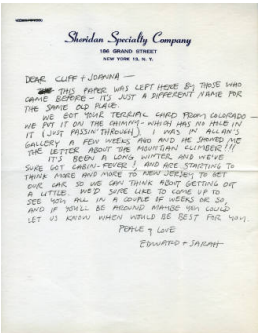 Sheridan Specialty Company
186 GRAND STREET
NEW YORK 13, N. Y.
DEAR CLIFF + JOANNA -
THIS PAPER WAS LEFT HERE BY THOSE WHO
CAME BEFORE - IT'S JUST A DIFFERENT NAME FOR
THE SAME OLD PLACE.
WE GOT YOUR TERRIAL CARD FROM COLORADO -
WE PUT IT ON THE CHIMNY - WHICH HAS A HOLE IN
IT (JUST PASSIN' THROUGH). I WAS IN ALLAN'S
GALLERY A FEW WEEKS AGO AND HE SHOWED ME
THE LETTER ABOUT THE MOUNTAIN CLIMBER!!!
IT'S BEEN A LONG, WINTER AND WE'VE
SURE GOT CABIN-FEVER, AND ARE STARTING TO
THINK MORE AND MORE TO NEW JERSEY TO GET
OUR CAR SO WE CAN THINK ABOUT GETTING OUT
A LITTLE. WE'D SURE LIKE TO COME UP TO
SEE YOU ALL IN A COUPLE OF WEEKS OR SO,
AND IF YOU'LL BE AROUND MAYBE YOU COULD
LET US KNOW WHEN WOULD BE BEST FOR YOU.
PEACE & LOVE
EDWARD + SARAH